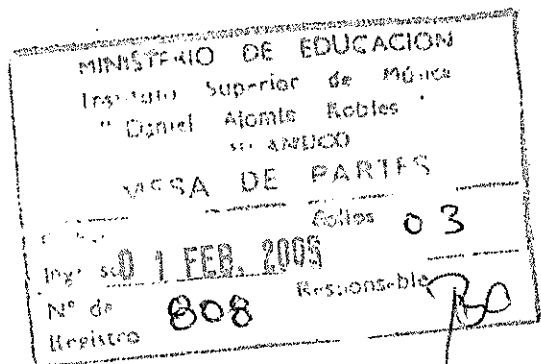 MINISTERIO DE EDUCACION
Instituto Superior de Música
" Daniel Alomía Robles "
HUANUCO
MESA DE PARTES
Folios 03
01 FEB. 2005
Nº de 808 Responsable
Registro